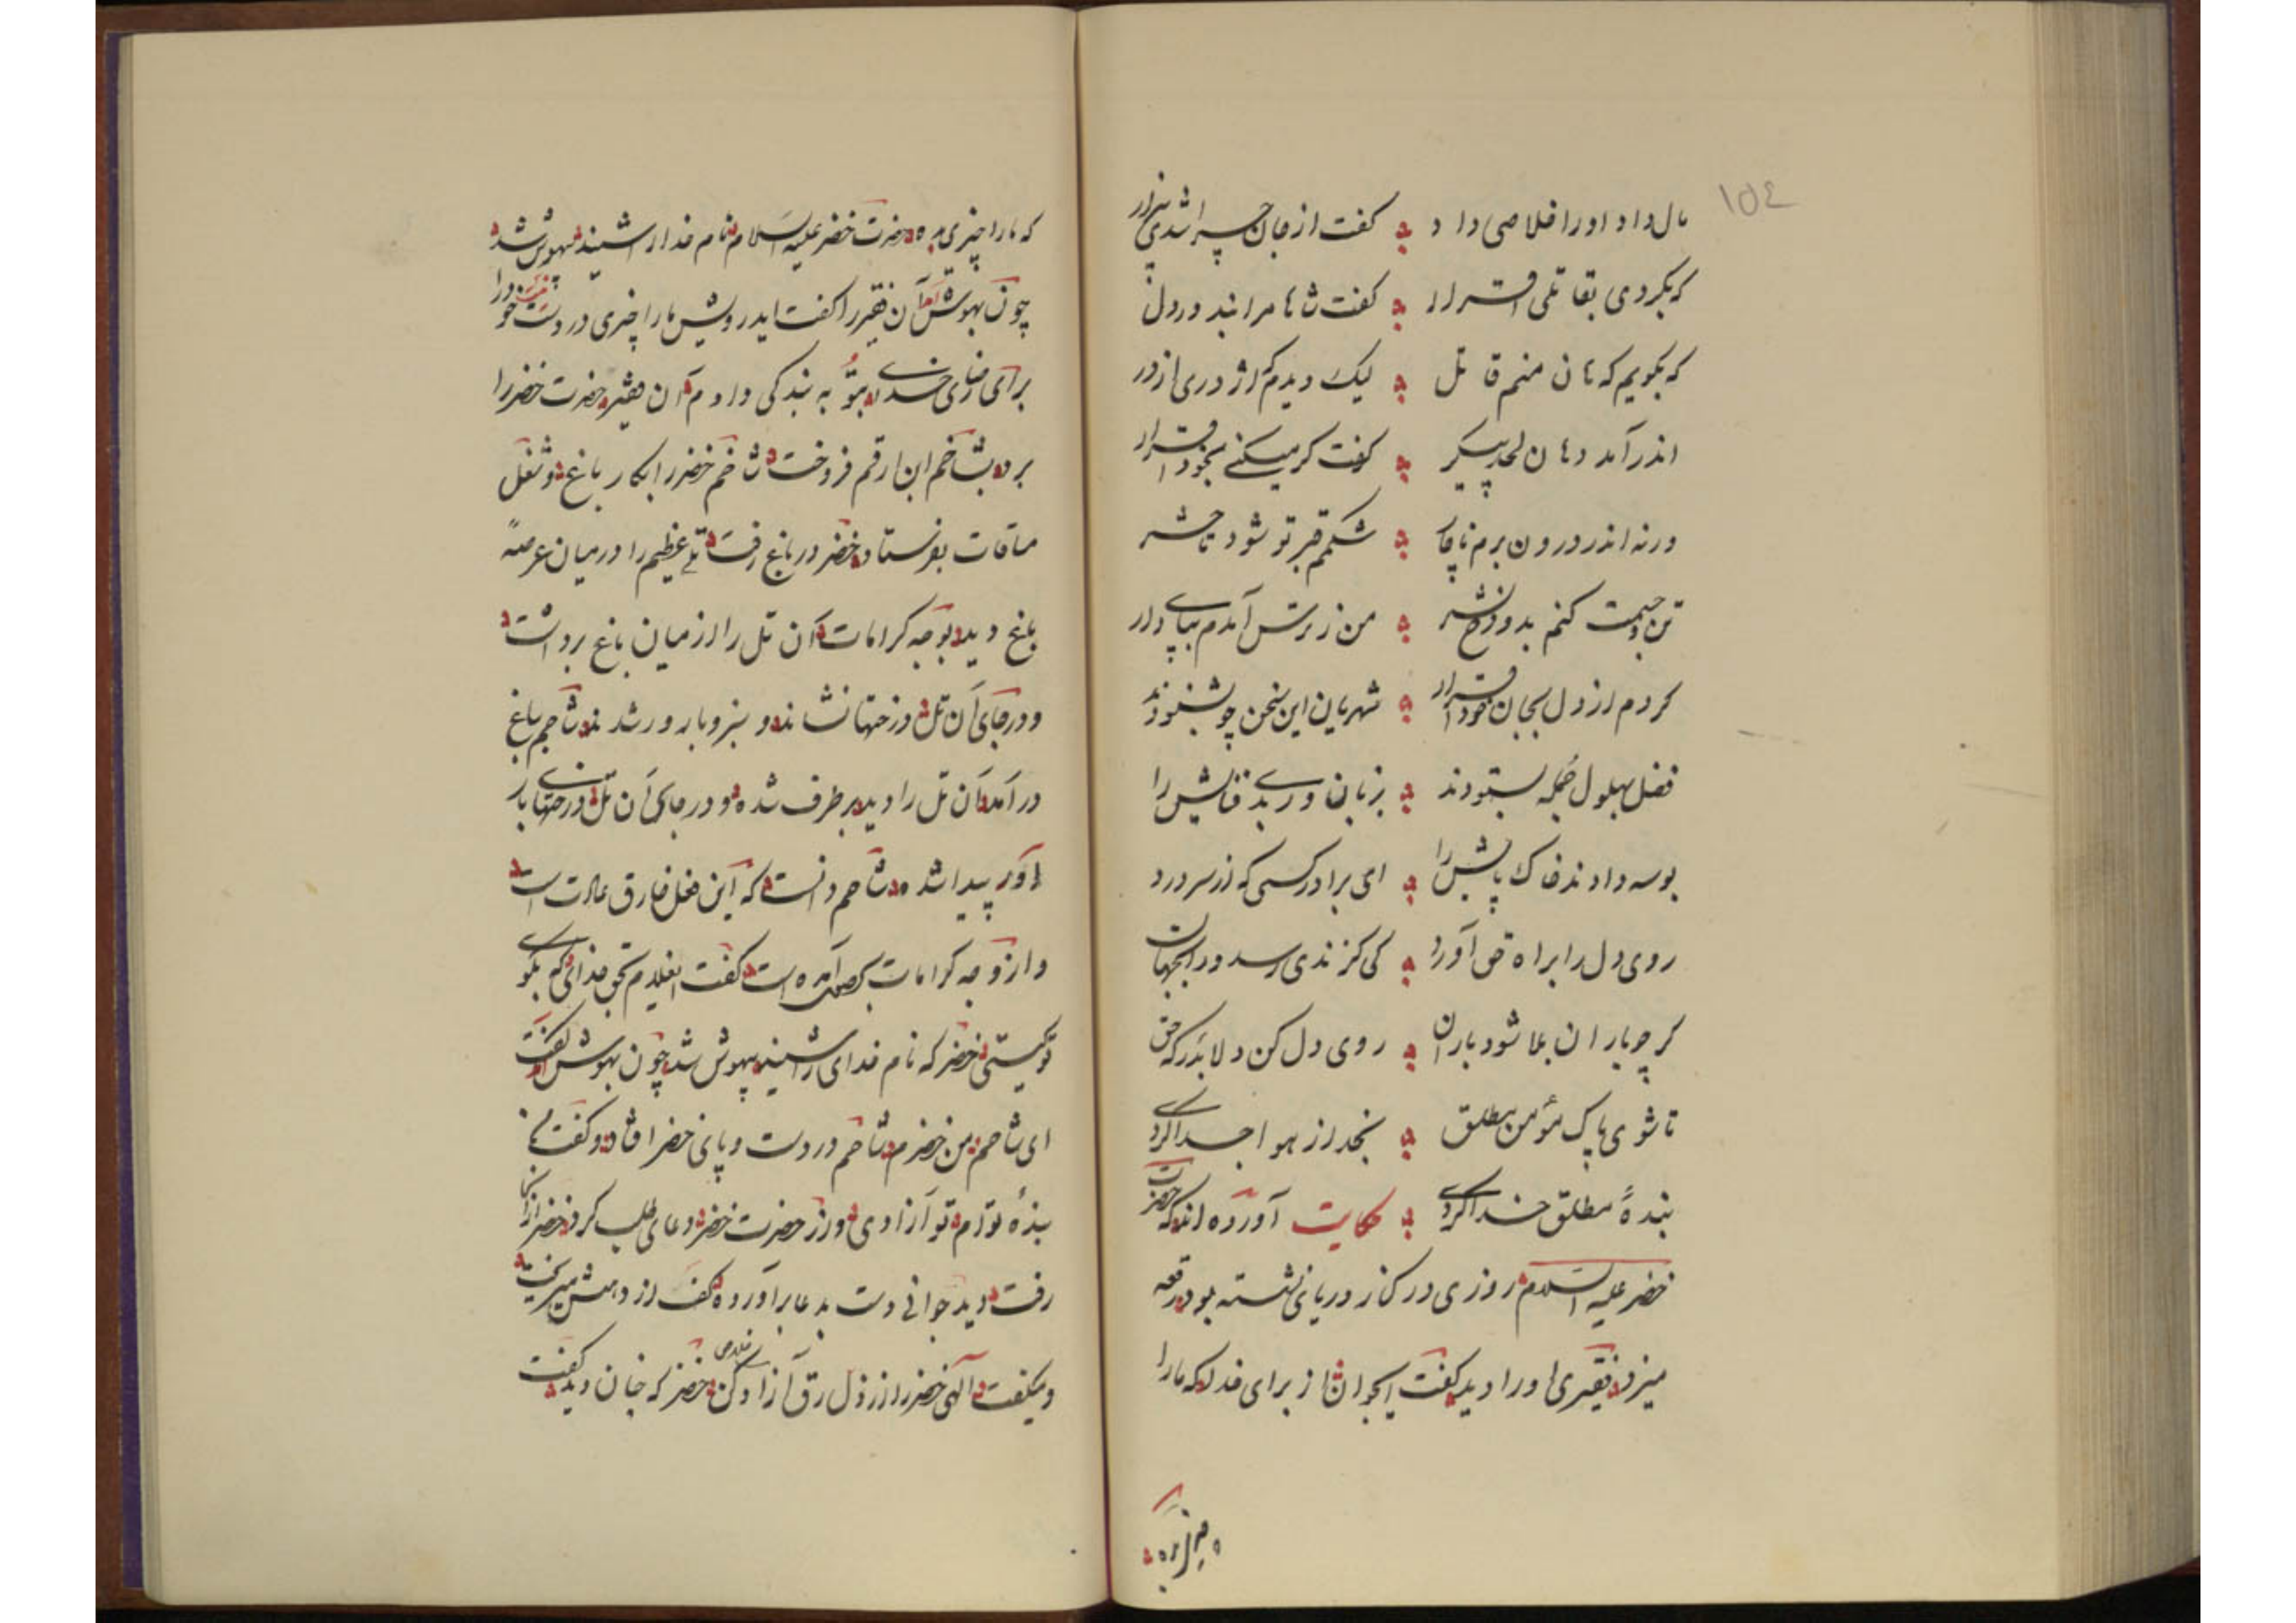 ١٥٤
مال داد اورا خلاصی داد گفت از جان چرا شدی بیزار
که بکردی بقاتلی اقرار گفت شاها مرا نبد در دل
که بگویم که هان منم قاتل لیک دیدم که اژدری از در
اندر آمد دهان پیکر گفت گر میکنی بخود اقرار
ورنه اندر درون برم ناچار شکم قبر تو شود تا حشر
من ز ترسش آمدم بپای دار
کردم از دل بجان خود اقرار شهریان این سخن چو بشنودند
فضل بهلول جمله بستودند بزبان فاش را
بوسه دادند خاک پاش را ای برادر کسی که از سر درد
روی دل را براه حق آورد کی گزندی رسد در اینجهان
گر چه باران بلا شود باران روی دل کن دلا بدرگه حق
تا شوی پاک مؤمن مطلق بخدا از هوا جدا گردی
بندهٔ مطلق خدا گردی حکایت آورده اند که حضرت
خضر علیه السلام روزی در کنار دریائی نشسته بود رقعه
میزد فقیری اورا دید گفت ایجوان از برای خدا که مارا
چیزی بده
که مارا چیزی بده حضرت خضر علیه السلام نام خدا را شنید بیهوش شد
چون بهوش آمد آن فقیر را گفت ایدرویش مارا چیزی در دست نیست خود را
برای رضای خدای بتو به بندگی دادم آن فقیر حضرت خضر را
برد بشاخم ابن ارقم فروخت شاخم خضر را بکار باغ و شغل
ساقات بفرستاد خضر در باغ رفت تلی عظیم را در میان عرصهٔ
باغ دید بوجه کرامات آن تل را از میان باغ برداشت
و در جای آن تل درختها نشاند و سبز و بارور شدند شاخم بباغ
در آمد آن تل را دید بر طرف شده و در جای آن تل درختهای بار
آور پیدا شده شاخم دانست که این فعل خارق عادت است
و از وجه کرامات بحصول آمده است گفت ایغلام بحق خدای که بگو
تو کیستی خضر که نام خدای را شنید بیهوش شد چون بهوش آمد گفت
ای شاخم من خضرم شاخم در دست و پای خضر افتاد و گفت من
بندهٔ توام تو آزادی و از حضرت خضر دعای طلب کرد خضر از آنجا
رفت دید جوانی دست بدعا برآورده کف از دهنش میریخت
و میگفت الهی خضر را از ذل رق آزاد کن خلاصی خضر که چنان دید گفت